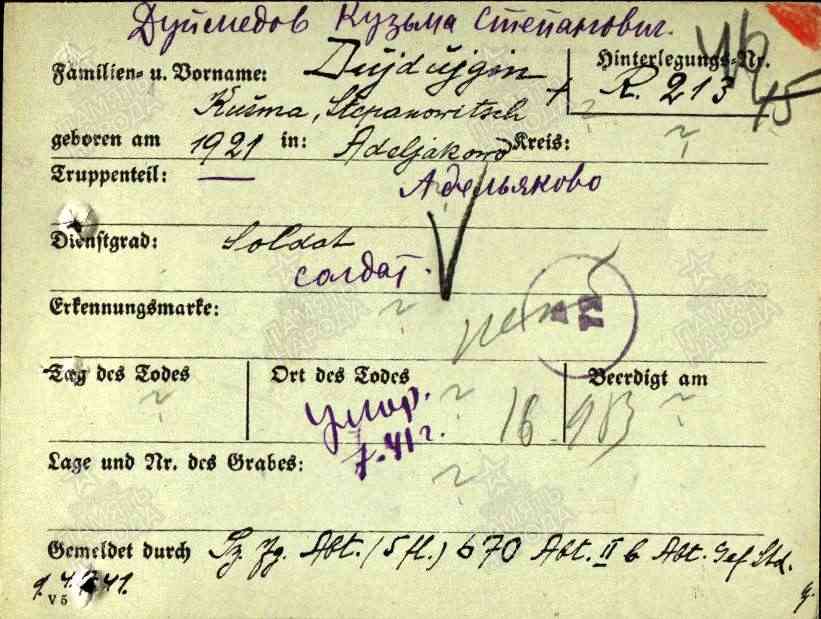 Дуймедов Кузьма Степанович.
Familien- u. Vorname: Dujdujgin
Hinterlegungs-Nr.
R. 213
Kusma, Stepanowitsch +
geboren am 1921 in: Adeljakowo Kreis: ?
Truppenteil: —
Адельяково
Dienstgrad: Soldat
солдат.
Erkennungsmarke: ?
Tag des Todes Ort des Todes Beerdigt am
? ? ?
16 983
7.41 г.
Lage und Nr. des Grabes: ?
Gemeldet durch Pz. Jg. Abt. (Sfl.) 670 Abt. II b
V 5